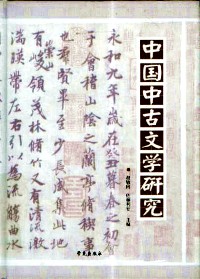 中国中古文学研究
赵敏俐 佐藤利行 主编
永和九年歲在癸丑暮春之初會
于會稽山陰之蘭亭脩稧事
也群賢畢至少長咸集此地
有崇山峻領茂林脩竹又有清流激
湍暎帶左右引以為流觴曲水
学苑出版社